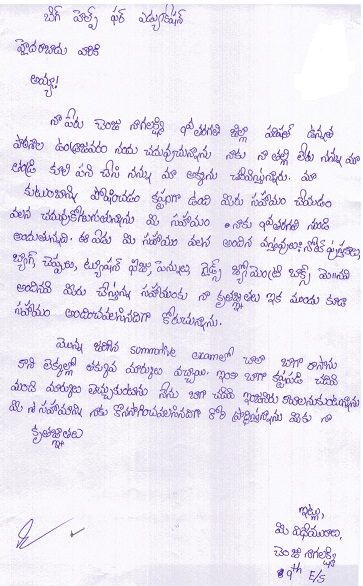 బిగ్ హెల్ప్ ఫర్ ఎడ్యుకేషన్
హైదరాబాదు వారికి
అయ్యా!
నా పేరు చెంజు నాగలక్ష్మి 9వ తరగతి జిల్లా పరిషత్ ఉన్నత
పాఠశాల నందు చదువుచున్నాను నాకు నా తల్లి లేదు నన్ను మా
తండ్రి కూలి పని చేసి నన్ను మా అక్కను చదివిస్తున్నారు. మా
కుటుంబాన్ని పోషించడం కష్టంగా ఉంది మీరు సహాయం చేయడం
వలన చదువుకోగలుగుతున్నాను మీ సహాయం నాకు తరగతి నుండి
అందుతున్నది. ఈ ఏడు మీ సహాయం వలన అందిన వస్తువులు: నోట్ పుస్తకాలు,
బ్యాగ్, చెప్పులు, ట్యూషన్ ఫీజు, పెన్నులు, గైడ్స్, జ్యోమెంట్రి బాక్స్
అందినవి మీరు చేస్తున్న సహాయంకు నా కృతజ్ఞతలు ఇక ముందు కూడా
సహాయం అందించవలసినదిగా కోరుచున్నాను.
మొన్న జరిగిన summative examలో చాలా బాగా రాసాను
కాని లెక్కల్లో తక్కువ మార్కులు వచ్చాయి. ఇంకా బాగా కష్టపడి చదివి
మంచి మార్కులు తెచ్చుకుంటాను నేను బాగా చదివి ఇంజనీరు కావాలనుకుంటున్నాను
మీ సహాయాన్ని నాకు కొనసాగించవలసినదిగా కోరి ప్రార్థిస్తున్నాను మీకు నా
కృతజ్ఞతలు
ఇట్లు,
మీ విధేయురాలు,
చెంజు నాగలక్ష్మి
9th E/S